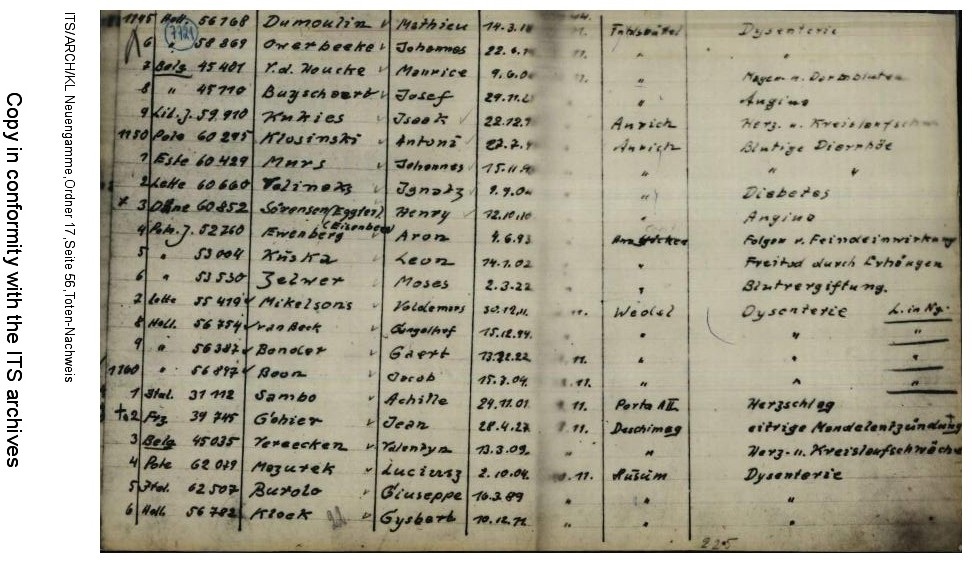 Copy in conformity with the ITS archives
ITS/ARCH/KL Neuengamme, Ordner 17, Seite 56, Toten-Nachweis
1145 Holl. 56768 Dumoulin Mathieu 14.3. 11. Fuhlsbüttel Dysenterie
(7721)
6 " 58869 Overbeeke Johannes 22. " "
7 Belg 45401 V.d. Houcke Maurice 9.6.0 " Magen u. Darmbluten
8 " 45710 Buyschaert Josef 29.11.2 " Angina
9 Lit. J. 59910 Kukies Isaak 22.12. Aurich Herz. u. Kreislaufschw
1150 Pole 60295 Klosinski Antoni Aurich Blutige Diarrhöe
1 Este 60429 Murs Johannes 15.11. " " "
2 Lette 60660 Ignatz 9.9.0 " Diabetes
x 3 Däne 60852 Sörensen (Eggters) Henry 12.10.10 " Angina
4 Pole. J. 52760 Ewenberg (Eisenberg) Aron 4.6.93 Folgen v. Feindeinwirkung
5 " 53004 Kriska Leon 14.1.02 " Freitod durch Erhängen
6 " 53530 Zelwer Moses 2.3.22 " Blutvergiftung.
7 Lette 55419 Mikelsons Voldemars 30.12.11. 11. Wedel Dysenterie L. in Ng.
8 Holl. 56754 van Beek Engelhof 15.12.94. " " "
9 " 56387 Bonder Geert " " "
1160 " 56897 Boon Jacob 15.7.04. 11. " " "
1 Ital. 31112 Sambo Achille 24.11.01 11. Porta A II. Herzschlag
+ 2 Frz. 39745 Göhier Jean 28.4.27 11. Deschimag eitrige Mandelentzündung
3 Belg 45035 Vereecken Valentyn 13.3.09. " " Herz- u. Kreislaufschwäche
4 Pole 62079 Mazurek Lucjusz 2.10.04. 11. Husum Dysenterie
5 Ital. 62507 Burolo Giuseppe 16.3.89 " " "
6 Holl. 56782 Kloek Gysbert 10.12. " " "
22
225